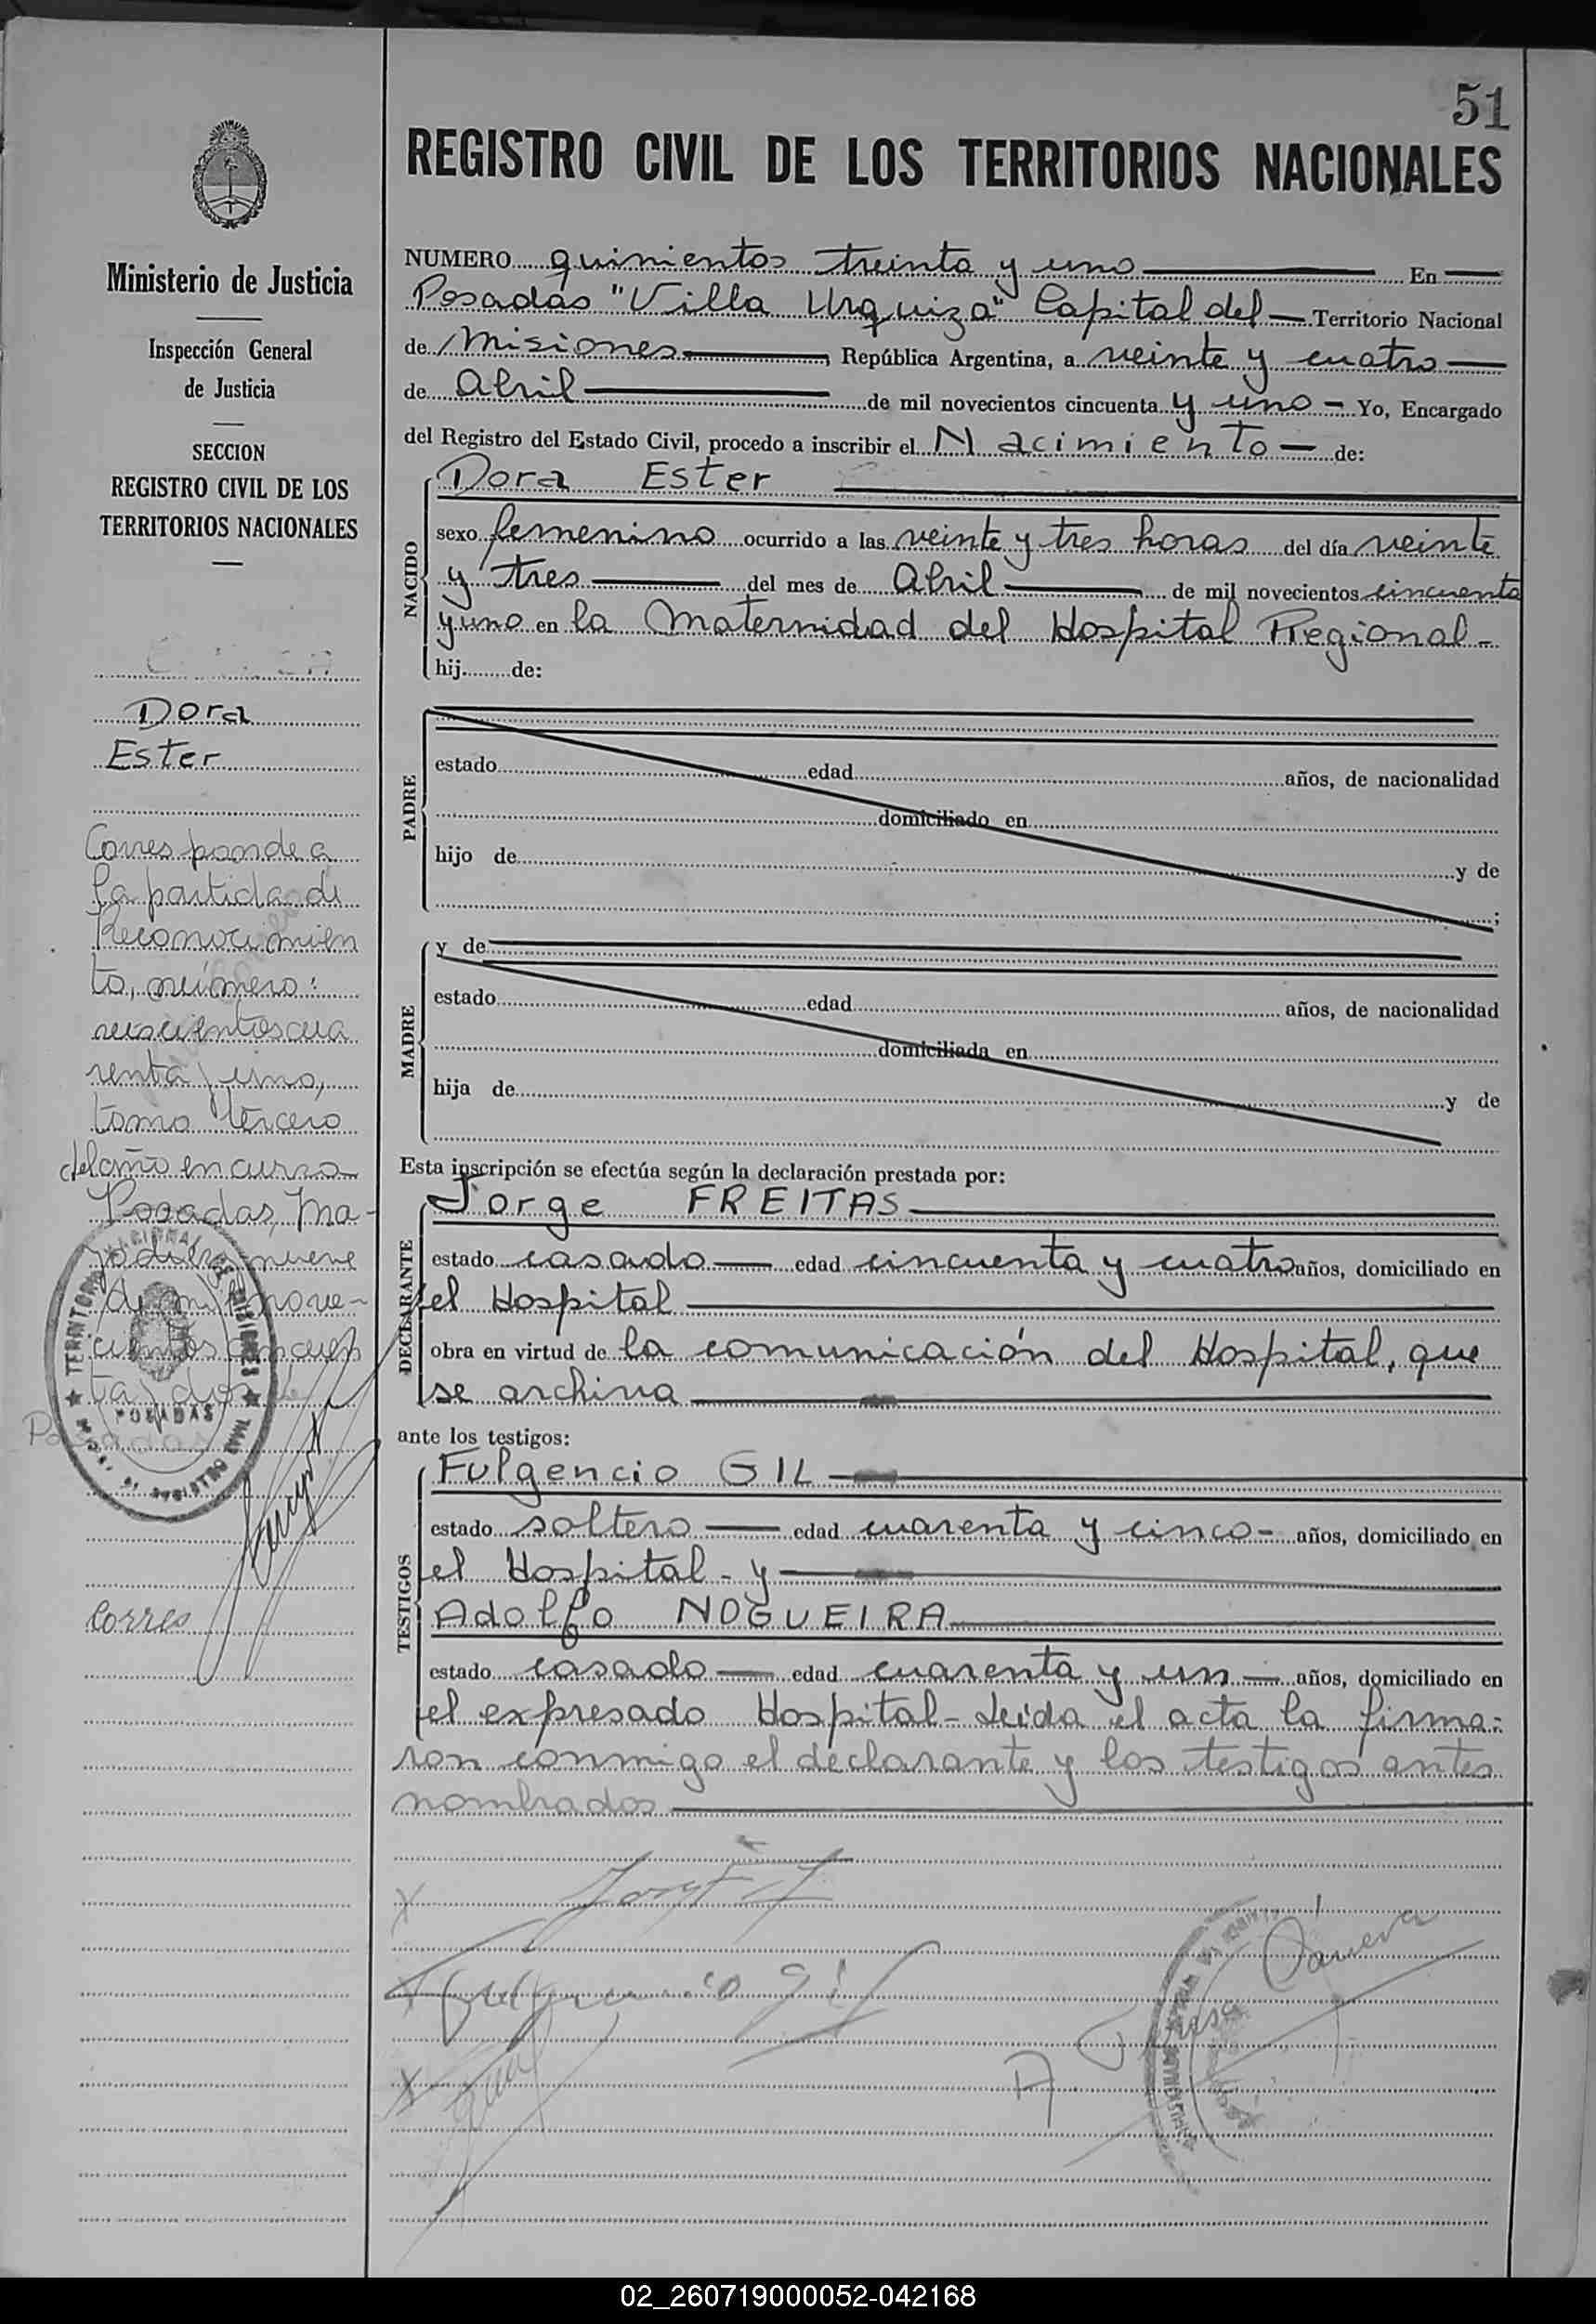 51
REGISTRO CIVIL DE LOS TERRITORIOS NACIONALES
Ministerio de Justicia
Inspección General
de Justicia
SECCION
REGISTRO CIVIL DE LOS
TERRITORIOS NACIONALES
Dora
Ester
Corresponde a
la partida de
Reconocimien
to, número:
seiscientos cua
renta y uno,
tomo tercero
del año en curso
Posadas, Ma-
yo diez y nueve
de mil nove-
cientos cincuen
ta y dos
Corres
NUMERO quinientos treinta y uno En
Posadas "Villa Urquiza" Capital del Territorio Nacional
de Misiones, República Argentina, a veinte y cuatro
de Abril de mil novecientos cincuenta y uno - Yo, Encargado
del Registro del Estado Civil, procedo a inscribir el Nacimiento de:
NACIDO
Dora Ester
sexo femenino ocurrido a las veinte y tres horas del día veinte
y tres del mes de Abril de mil novecientos cincuenta
y uno en la Maternidad del Hospital Regional-
hij de:
PADRE
estado edad años, de nacionalidad
domiciliado en
hijo de y de
;
MADRE
y de
estado edad años, de nacionalidad
domiciliada en
hija de y de
Esta inscripción se efectúa según la declaración prestada por:
DECLARANTE
Jorge FREITAS
estado casado edad cincuenta y cuatro años, domiciliado en
el Hospital
obra en virtud de la comunicación del Hospital, que
se archiva
ante los testigos:
TESTIGOS
Fulgencio GIL
estado soltero edad cuarenta y cinco- años, domiciliado en
el Hospital - y
Adolfo NOGUEIRA
estado casado edad cuarenta y un años, domiciliado en
el expresado Hospital - Leída el acta la firma-
ron conmigo el declarante y los testigos antes
nombrados
Fulgencio Gil
02_260719000052-042168